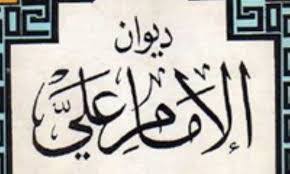 ديوان
الإمام علي